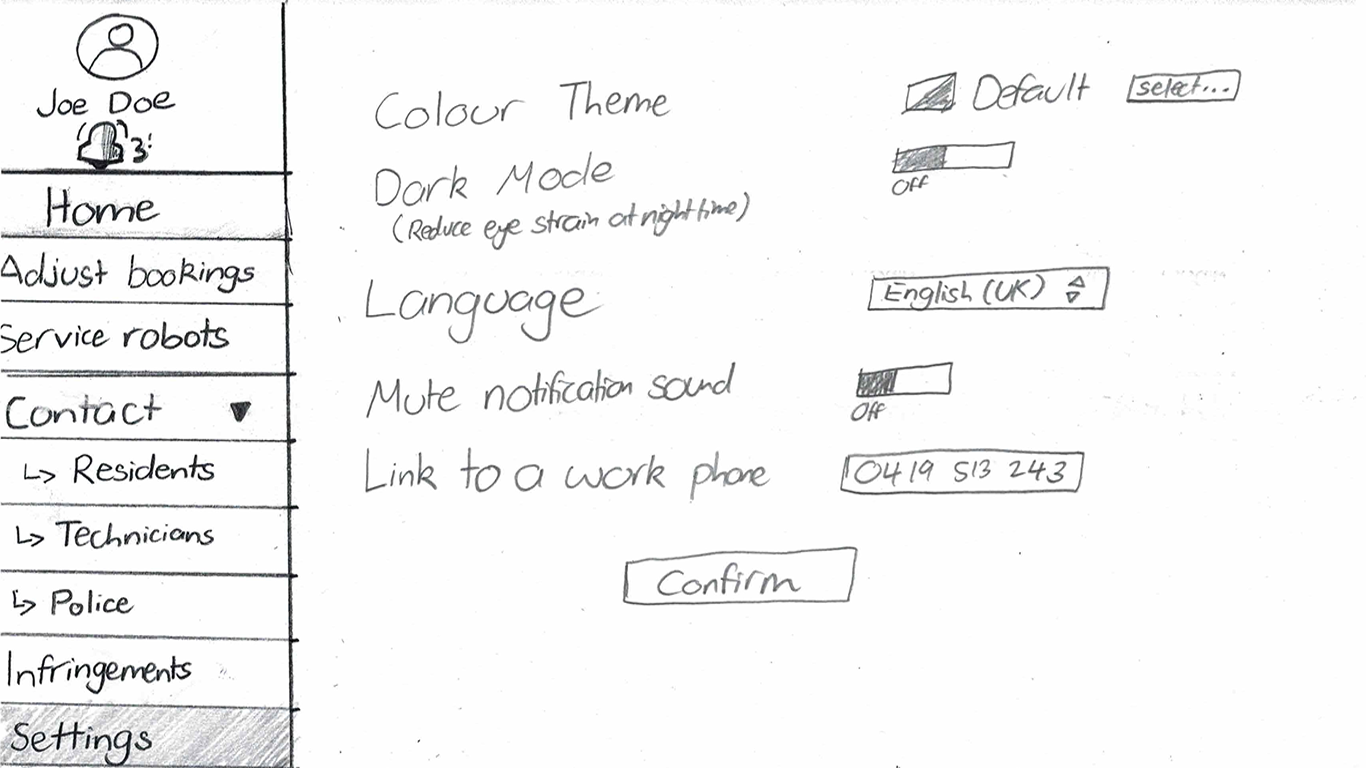 Joe Doe
3
Home
Adjust bookings
Service robots
Contact
Residents
Technicians
Police
Infringements
Settings
Colour Theme
Default
select...
Dark Mode
Off
(Reduce eye strain at nighttime)
Language
English (UK)
Mute notification sound
Off
Link to a work phone
0419 513 243
Confirm